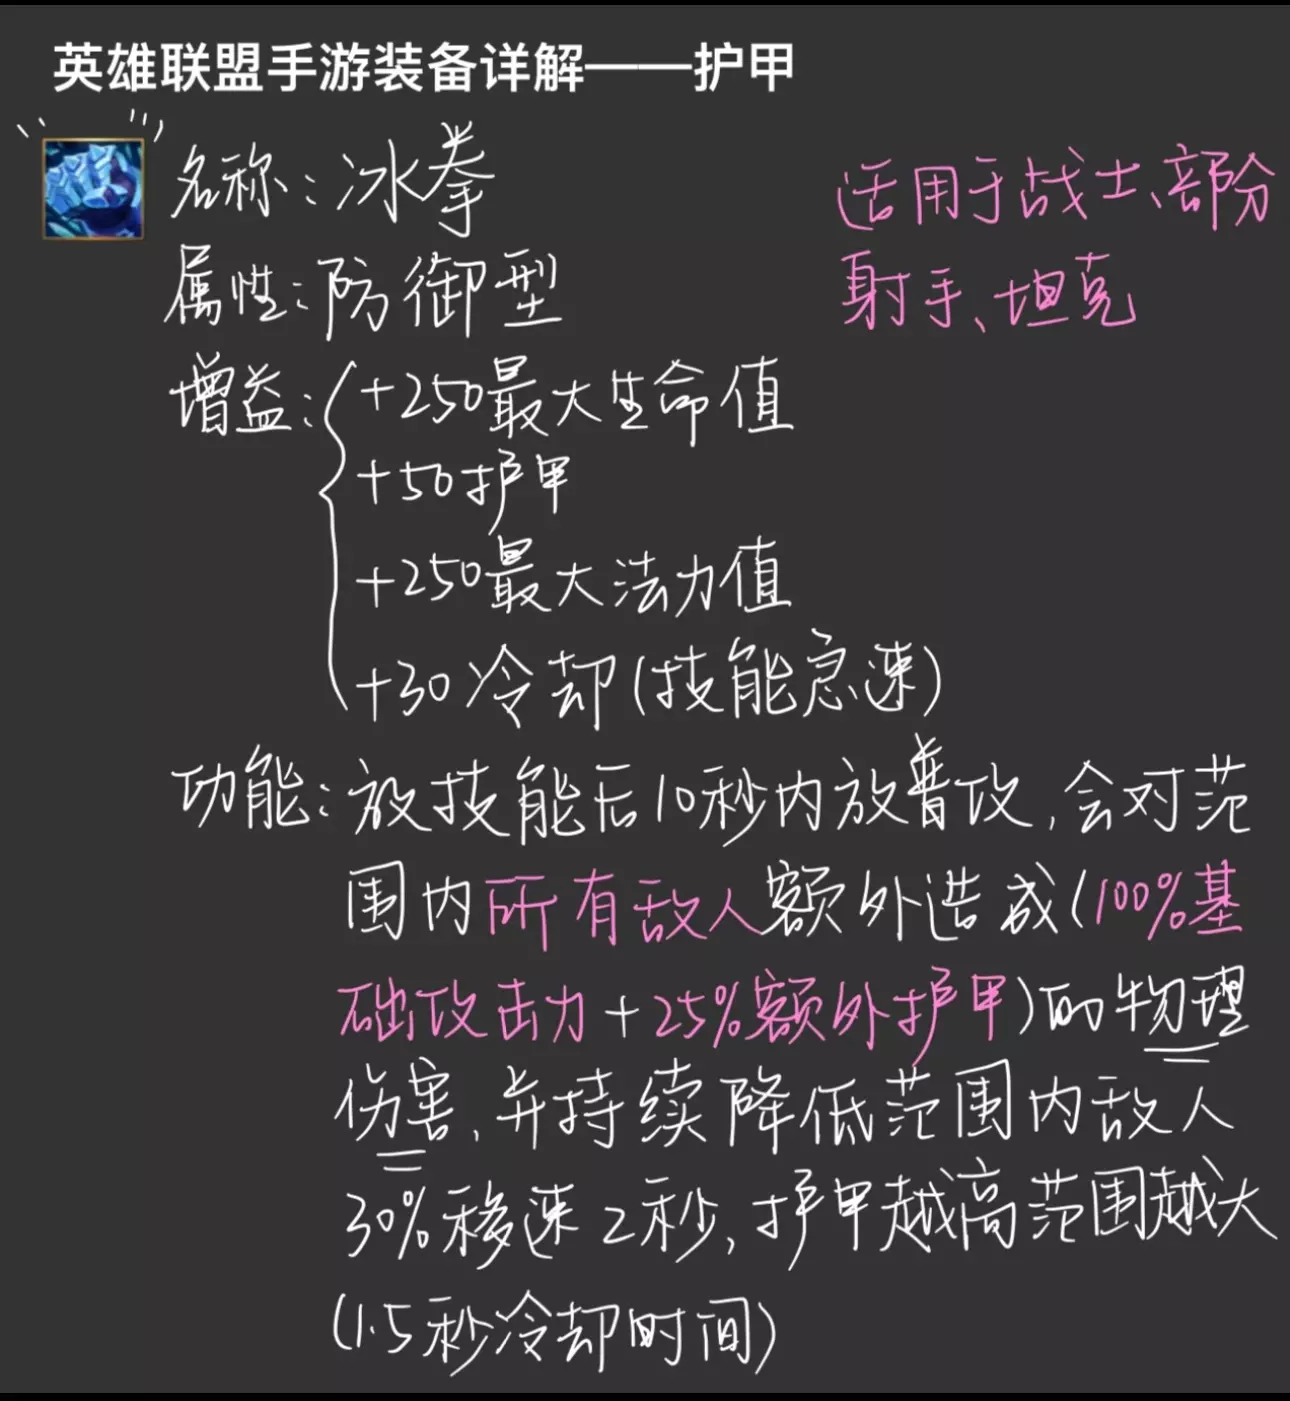 英雄联盟手游装备详解——护甲
名称:冰拳
适用于战士、部分
射手、坦克
属性:防御型
增益:
+250最大生命值
+50护甲
+250最大法力值
+30冷却(技能急速)
功能:放技能后10秒内放普攻,会对范
围内所有敌人额外造成(100%基
础攻击力+25%额外护甲)的物理
伤害,并持续降低范围内敌人
30%移速2秒,护甲越高范围越大
(1.5秒冷却时间)